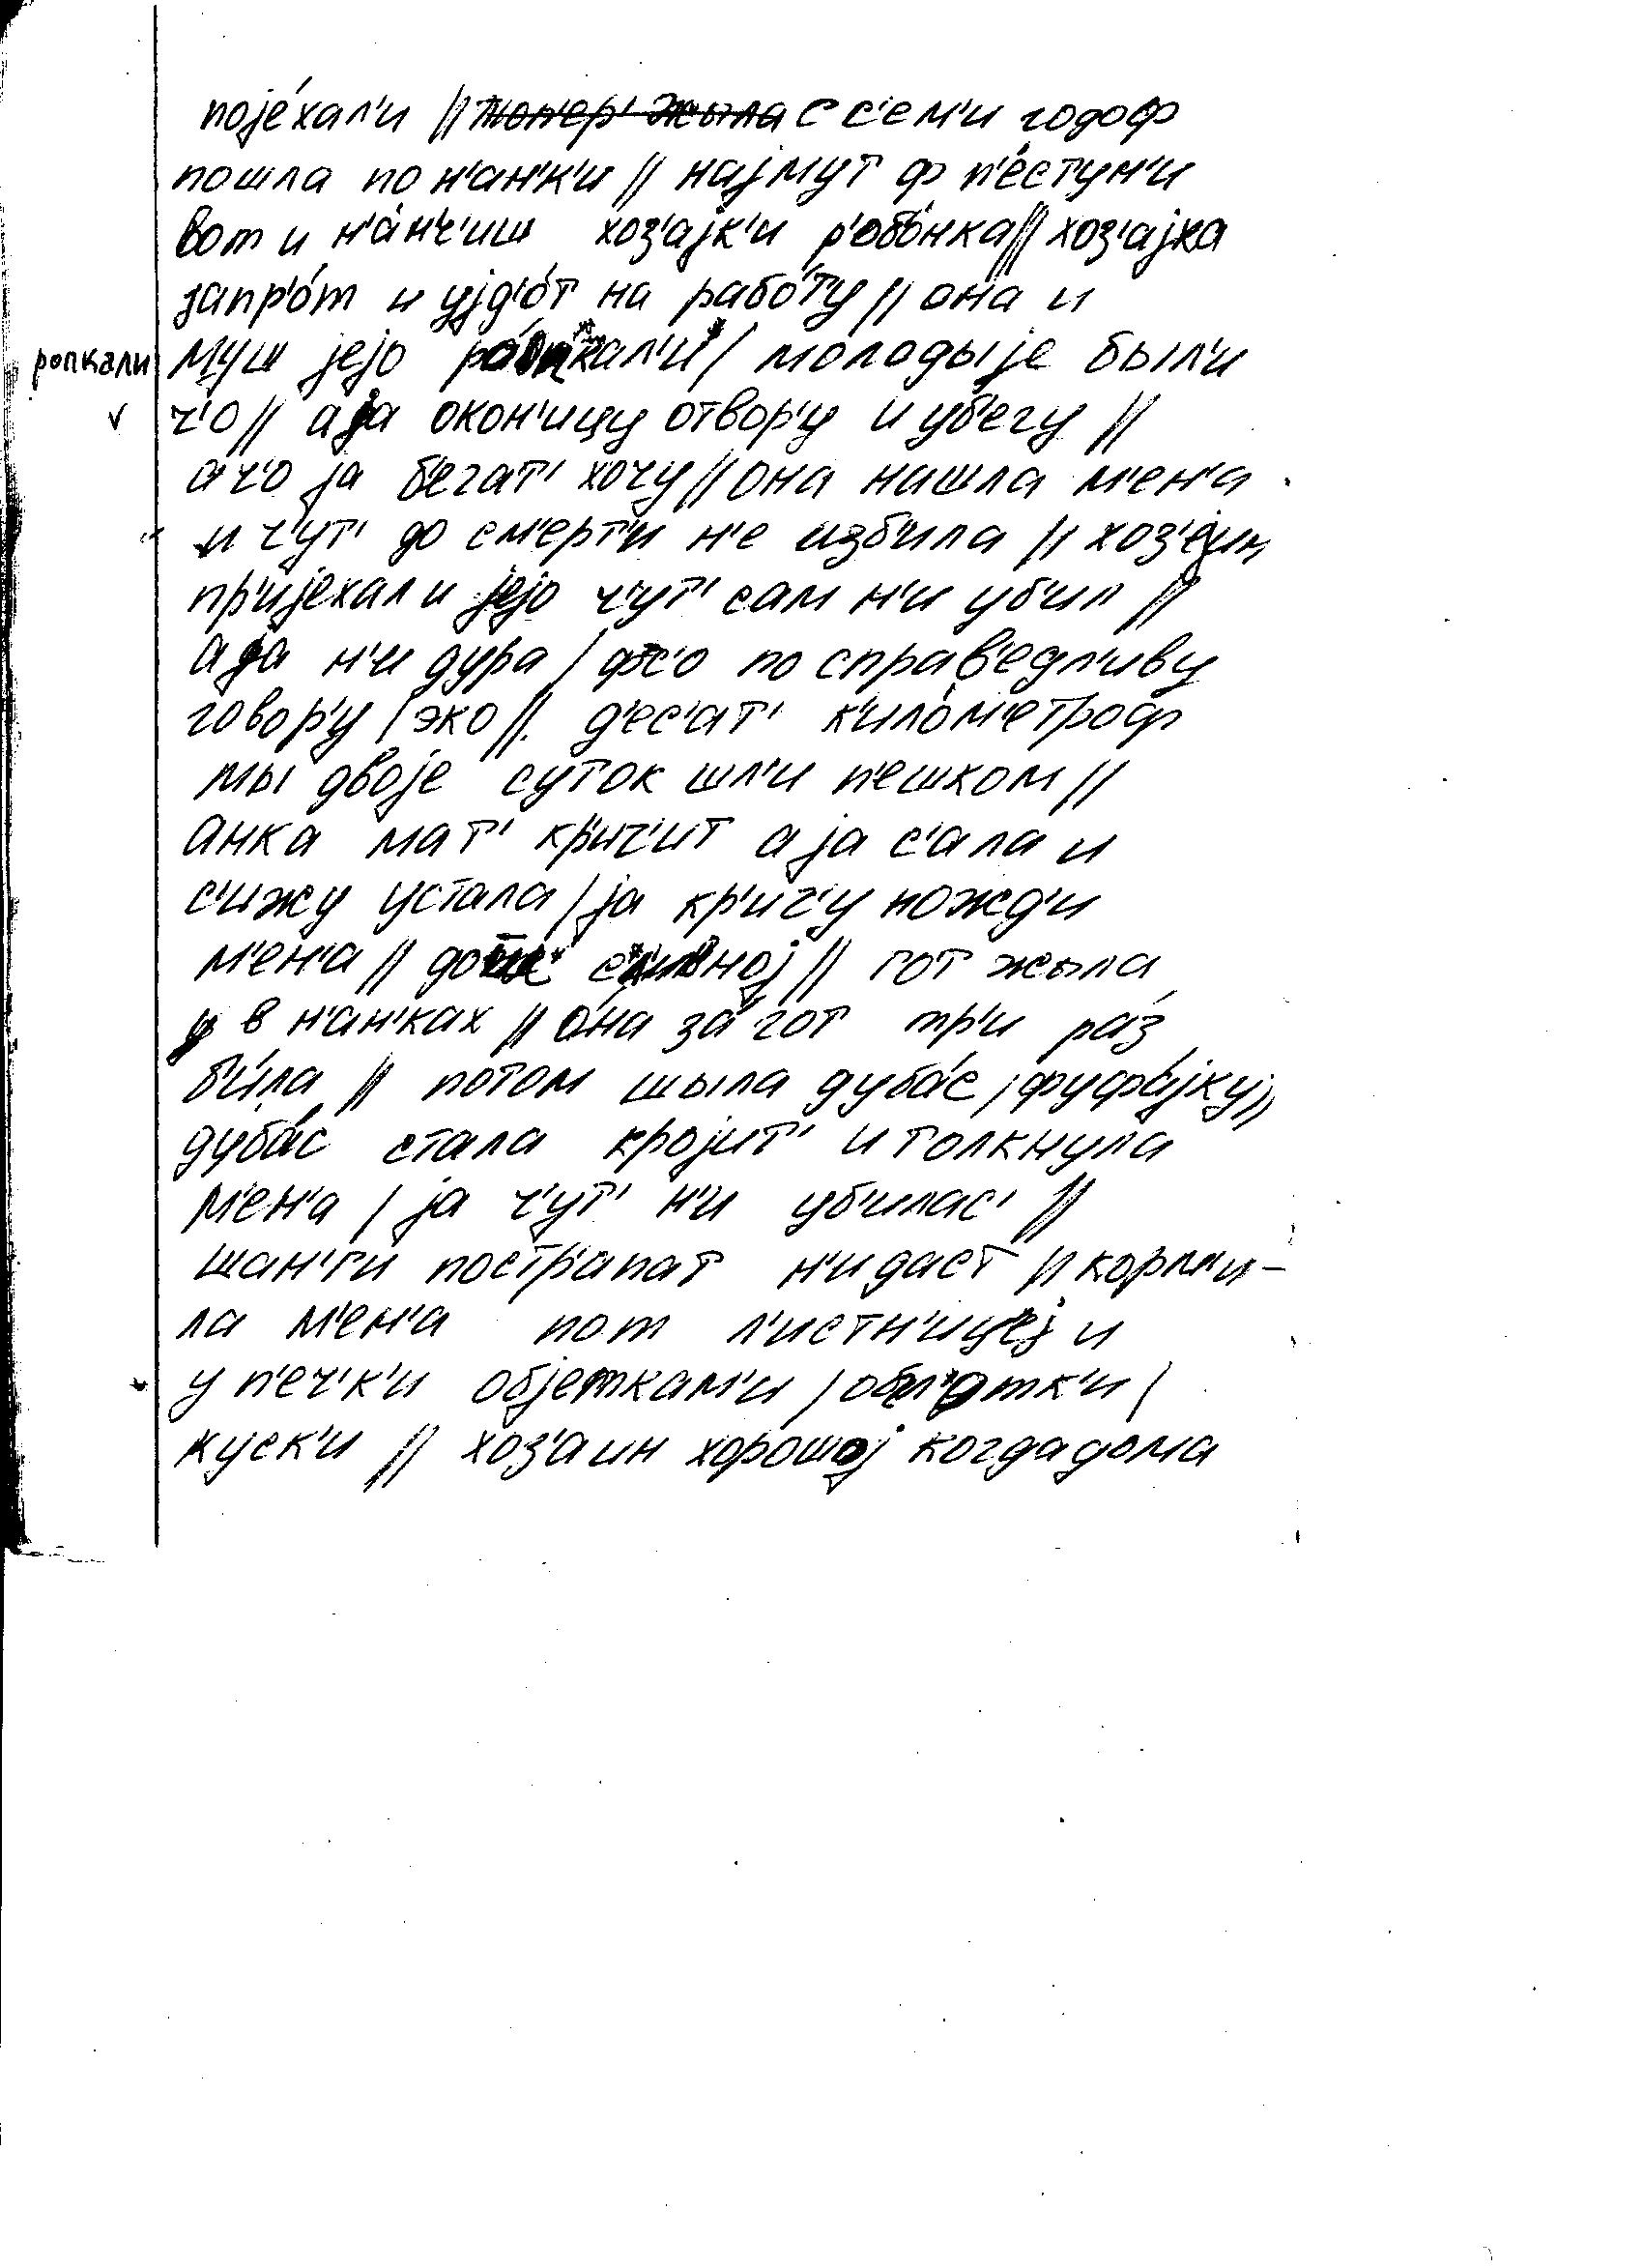 поје́хал'и // т'оп'ер' жыла с с'ем'и годоф
пошла по н'ан'к'и // најмут ф п'е́стун'и
вот и н'а́нч'иш хоз'ајк'и р'обо́нка // хоз'ајка
запр'о́т и ујд'о́т на рабо́ту // она и
ропкали муш јејо ропкал'и / молодыје был'и
ч'о // а ја окон'ицу отвор'у и уб'егу //
а ч'о ја б'егат' хочу // она нашла м'ен'а
и ч'ут' до см'ерт'и н'е изб'ила // хоз'еин
пр'ијехал и јејо ч'ут' сам н'и уб'ил //
а ја н'и дура / фс'о по справ'едл'иву
говор'у / эко // д'ес'ат' к'ило́м'етроф
мы двоје суток шл'и п'ешком //
анка мат' кр'ич'ит а ја с'ала и
с'ижу устала / ја кр'ич'у пожд'и
м'ен'а // гот жыла
в н'ан'ках // она за́ гот тр'и ра́з
б'и́ла // потом шыла дуба́с / фуфа́јку //
дуба́с стала кројит' и толкнула
м'ен'а / ја ч'ут' н'и уб'илас' //
шан'ги постр'апат н'и даст // корм'и-
ла м'ен'а пот л'истн'ицеј и
у п'еч'к'и објеткам'и / /
куск'и // хоз'аин хорошој когда дома